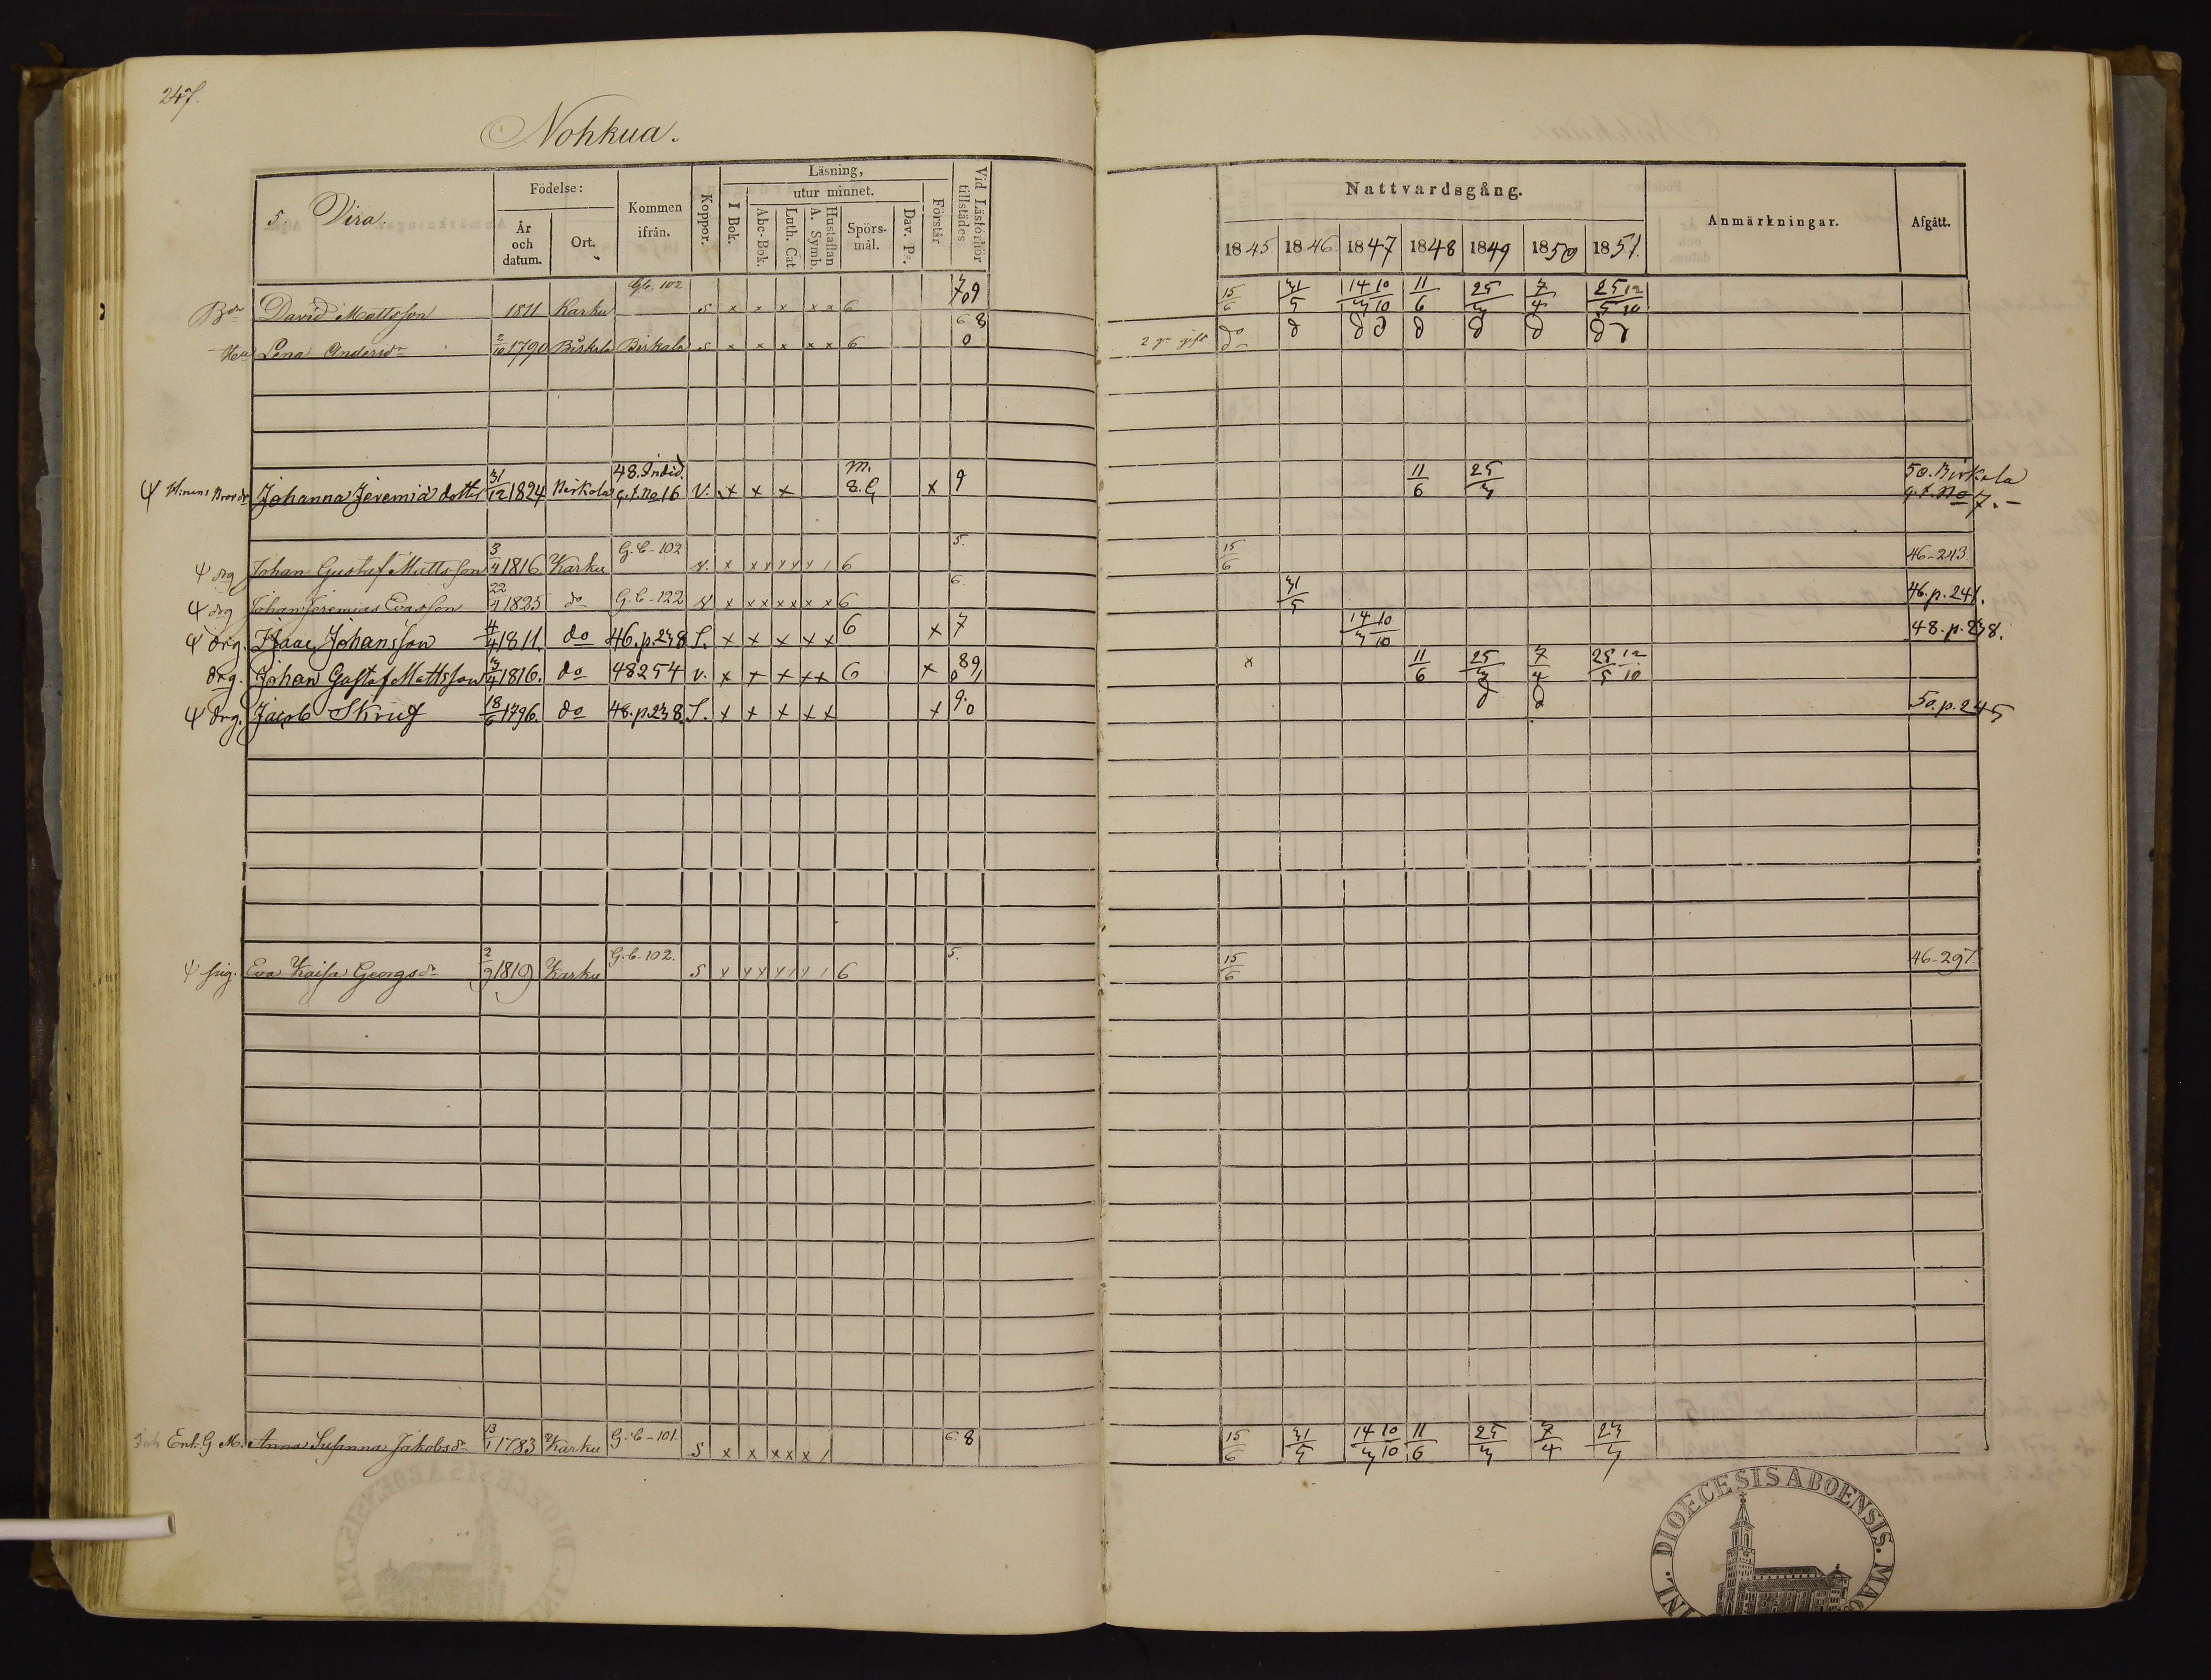 247.
Nohkua.
5. Vira.
Födelse:
År och datum.
Ort.
Kommen ifrån.
Koppor.
Läsning,
I Bok.
utur minnet.
Abc-Bok.
Luth. Cat
Hustaflan A. Symb.
Spörs-mål.
Dav. Ps.
Förstår
Vid Läsförhör tillstädes
Nattvardsgång.
1845 1846 1847 1848 1849 1850 1851.
Anmärkningar.
Afgått.
David Mattsson 1811 Karku G.b. 102 s x x x x x 6 15/6 31/5 14/3 10/10 11/6 25/3 7/4 25/5 12/10
Lena Andersdr 2/10 1790 Birkala Birkala s x x x x x 6 6.8 0 2 gr gift do
Johanna Jeremiädotter 31/12 1824 Birkala 48. Indid. g.t. No 16 v. x x x x 9 11/6 25/3 50. Birkala g.t. No 7.-
ψ drg Johan Gustaf Mattsson 3/4 1816 Karku G.b-102 v. x x x x x x 6 5. 15/6 46-243
ψ drg Johan Jeremias Evasson 22/4 1825 do G.b-122 v x x x x x x x 6 6. 31/5 46.p.241.
ψ drg. Isaac Johansson 4/4 1811. do 46.p.238 S. x x x x x 6 x 7 14/3 10/10 48.p.238.
drg. Johan Gustaf Mattsson 3/4 1816. do 48254 v. x x x x x 6 x 8 9, 0 x 11/6 25/3 7/4 25/5 12/10
ψ drg. Jacob Skrif 18/6 1796. do 48.p.238 S. x x x x x x 9. 0 50.p.245
ψ pig. Eva Kaisa Georgsdr 2/9 1819 Karku G.b-102. s x x x x x x / 6 5. 15/6 46-297.
Enk. G M. Anna Susanna Jakobsdr 13/1 1783 Karku G.b-101. s x x x x x / 6.8 15/6 31/5 14/3 10/10 11/6 25/3 7/4
DIOECESIS ABOENSIS.